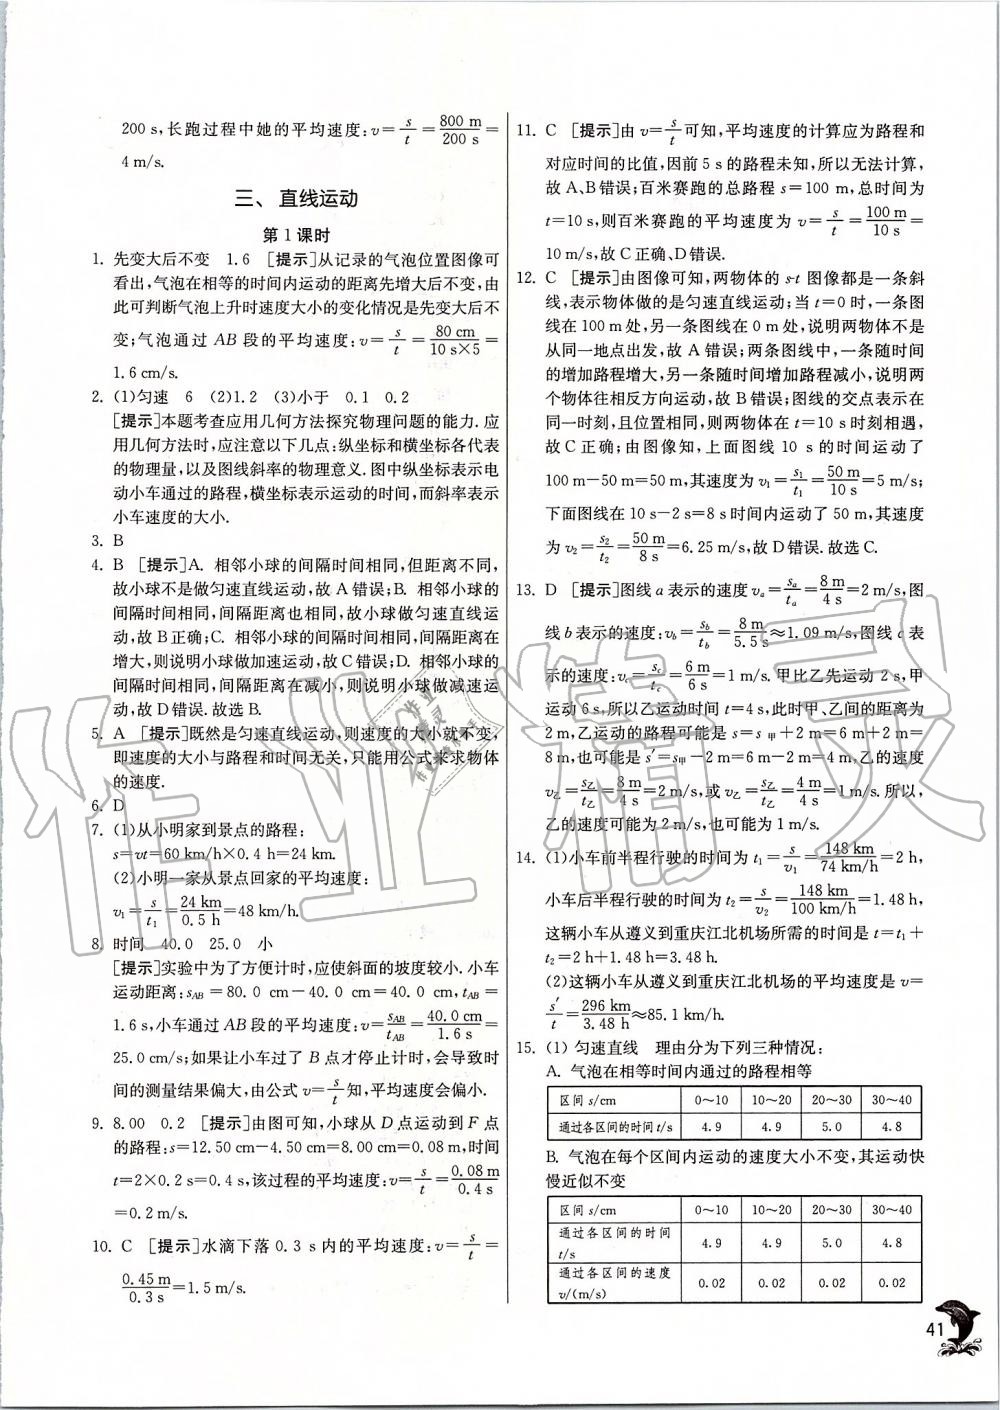 200 s,长跑过程中她的平均速度:v=s/t=800 m/200 s=
4 m/s.
三、直线运动
第1课时
1. 先变大后不变 1.6 [提示]从记录的气泡位置图像可
看出,气泡在相等的时间内运动的距离先增大后不变,由
此可判断气泡上升时速度大小的变化情况是先变大后不
变;气泡通过 AB 段的平均速度:v=s/t=80 cm/10 s×5=
1.6 cm/s.
2. (1)匀速 6 (2)1.2 (3)小于 0.1 0.2
[提示]本题考查应用几何方法探究物理问题的能力.应
用几何方法时,应注意以下几点:纵坐标和横坐标各代表
的物理量,以及图线斜率的物理意义.图中纵坐标表示电
动小车通过的路程,横坐标表示运动的时间,而斜率表示
小车速度的大小.
3. B
4. B [提示]A. 相邻小球的间隔时间相同,但距离不同,
故小球不是做匀速直线运动,故 A 错误;B. 相邻小球的
间隔时间相同,间隔距离也相同,故小球做匀速直线运
动,故 B 正确;C. 相邻小球的间隔时间相同,间隔距离在
增大,则说明小球做加速运动,故 C 错误;D. 相邻小球的
间隔时间相同,间隔距离在减小,则说明小球做减速运
动,故 D 错误.故选 B.
5. A [提示]既然是匀速直线运动,则速度的大小就不变,
即速度的大小与路程和时间无关,只能用公式来求物体
的速度.
6. D
7. (1)从小明家到景点的路程:
s=vt=60 km/h×0.4 h=24 km.
(2)小明一家从景点回家的平均速度:
v₁=s/t₁=24 km/0.5 h=48 km/h.
8. 时间 40.0 25.0 小
[提示]实验中为了方便计时,应使斜面的坡度较小.小车
运动距离:s_AB=80.0 cm-40.0 cm=40.0 cm,t_AB=
1.6 s,小车通过 AB 段的平均速度:v=s_AB/t_AB=40.0 cm/1.6 s=
25.0 cm/s;如果让小车过了 B 点才停止计时,会导致时
间的测量结果偏大,由公式 v=s/t知,平均速度会偏小.
9. 8.00 0.2 [提示]由图可知,小球从 D 点运动到 F 点
的路程:s=12.50 cm-4.50 cm=8.00 cm=0.08 m,时间
t=2×0.2 s=0.4 s,该过程的平均速度:v=s/t=0.08 m/0.4 s
=0.2 m/s.
10. C [提示]水滴下落 0.3 s 内的平均速度:v=s/t=
0.45 m/0.3 s=1.5 m/s.
11. C [提示]由 v=s/t可知,平均速度的计算应为路程和
对应时间的比值,因前 5 s 的路程未知,所以无法计算,
故 A、B 错误;百米赛跑的总路程 s=100 m,总时间为
t=10 s,则百米赛跑的平均速度为 v=s/t=100 m/10 s=
10 m/s,故 C 正确、D 错误.
12. C [提示]由图像可知,两物体的 s-t 图像都是一条斜
线,表示物体做的是匀速直线运动;当 t=0 时,一条图
线在 100 m 处,另一条图线在 0 m 处,说明两物体不是
从同一地点出发,故 A 错误;两条图线中,一条随时间
的增加路程增大,另一条随时间增加路程减小,说明两
个物体往相反方向运动,故 B 错误;图线的交点表示在
同一时刻,且位置相同,则两物体在 t=10 s 时刻相遇,
故 C 正确;由图像知,上面图线 10 s 的时间运动了
100 m-50 m=50 m,其速度为 v₁=s₁/t₁=50 m/10 s=5 m/s;
下面图线在 10 s-2 s=8 s 时间内运动了 50 m,其速度
为 v₂=s₂/t₂=50 m/8 s=6.25 m/s,故 D 错误.故选 C.
13. D [提示]图线 a 表示的速度 v_a=s_a/t_a=8 m/4 s=2 m/s,图
线 b 表示的速度:v_b=s_b/t_b=8 m/5.5 s≈1.09 m/s,图线 c 表
示的速度:v_c=s_c/t_c=6 m/6 s=1 m/s. 甲比乙先运动 2 s,甲
运动 6 s,所以乙运动时间 t=4 s,此时甲、乙间的距离为
2 m,乙运动的路程可能是 s=s甲+2 m=6 m+2 m=
8 m,也可能是 s′=s甲-2 m=6 m-2 m=4 m,乙的速度
v乙=s乙/t乙=8 m/4 s=2 m/s,或 v乙=s乙/t乙=4 m/4 s=1 m/s.所以,
乙的速度可能为 2 m/s,也可能为 1 m/s.
14. (1)小车前半程行驶的时间为 t₁=s/v₁=148 km/74 km/h=2 h,
小车后半程行驶的时间为 t₂=s/v₂=148 km/100 km/h=1.48 h,
这辆小车从遵义到重庆江北机场所需的时间是 t=t₁+
t₂=2 h+1.48 h=3.48 h.
(2)这辆小车从遵义到重庆江北机场的平均速度是 v=
s′/t=296 km/3.48 h≈85.1 km/h.
15. (1) 匀速直线 理由分为下列三种情况:
A. 气泡在相等时间内通过的路程相等
区间 s/cm 0～10 10～20 20～30 30～40
通过各区间的时间 t/s 4.9 4.9 5.0 4.8
B. 气泡在每个区间内运动的速度大小不变,其运动快
慢近似不变
区间 s/cm 0～10 10～20 20～30 30～40
通过各区间的时间
t/s 4.9 4.9 5.0 4.8
通过各区间的速度
v/(m/s) 0.02 0.02 0.02 0.02
41
作业精灵